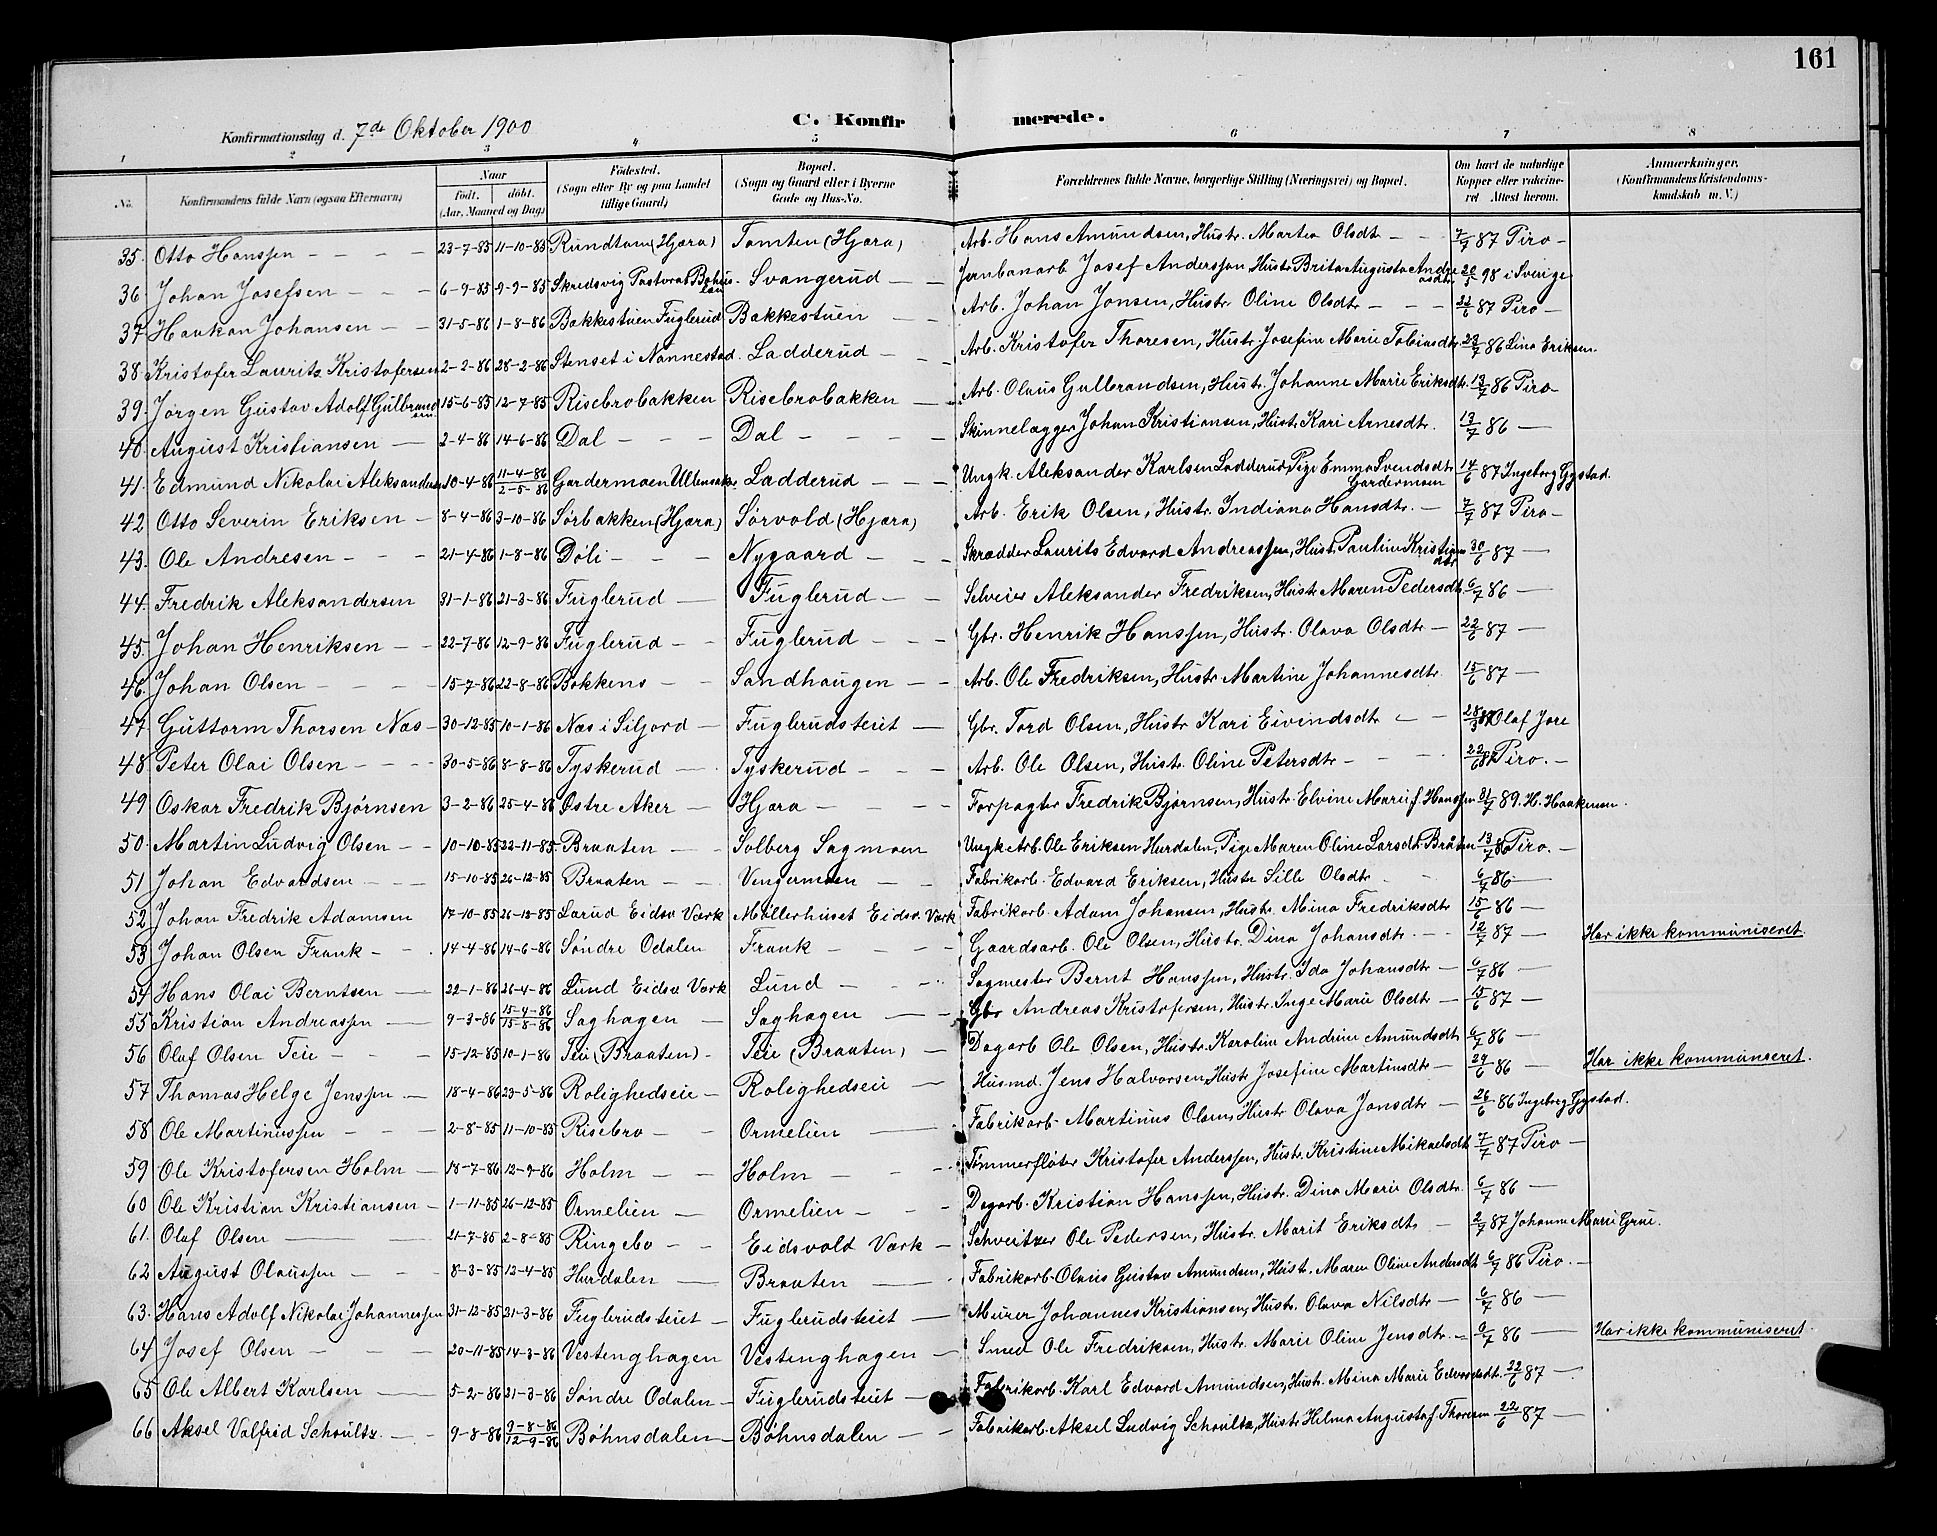 161
Konfirmationsdag d. 7de Oktober 1900
C. Konfirmerede.
1 2 3 4 5 6 7 8
No. Konfirmandens fulde Navn (ogsaa Efternavn) Naar født. døbt. (Aar, Maaned og Dag) Fødested. (Sogn eller By og paa Landet tillige Gaard) Bopæl. (Sogn og Gaard eller i Byerne Gade og Hus-No. Forældrenes fulde Navne, borgerlige Stilling (Næringsvei) og Bopæl. Om havt de naturlige Kopper eller vakcineret Attest herom. Anmærkninger. (Konfirmandens Kristendomskundskab m. V.)
35. Otto Hanssen 23-7-85 11-10-85 Rundtom (Hjøra) Tomten (Hjøra) Arb. Hans Amundsen, Hustr. Martea Olsdt 7/7 87 Piro
36 Johan Josefsen 6-9-85 9-9-85 Skredsvig Pastorat Bohuslan Svangerud Jernbanarb Josef Anderssen Hustr Brita Augusta Andreasdtr 20/5 98 i Sverige
37 Haakon Johansen 31-5-86 1-8-86 Bakkestuen Fuglerud Bakkestuen Arb. Johan Jonsen, Hustr. Oline Olsdtr 22/6 87 Piro
38 Kristofer Lauritz Kristofersen 2-2-86 28-2-86 Stenset i Nannestad Ladderud Arb. Kristofer Thoresen, Hustr Josefine Marie Tobiasdtr 23/7 86 Lina Eriksen.
39. Jørgen Gustav Adolf Gulbrandsen 15-6-85 12-7-85 Risebrobakken Risebrobakken Arb. Olaus Gulbrandsen, Hustr. Johanne Marie Eriksdtr. 13/7 86 Piro
40. August Kristiansen 2-4-86 14-6-86 Dal Dal Skinnelægger Johan Kristiansen, Hustr. Kari Arnesdtr. 13/7 86
41. Edmund Nikolai Aleksandersen 10-4-86 11-4-86 2-5-86 Gardermoen Ullensaker Ladderud Ungk. Aleksander Karlsen Ladderud, Pige Emma Svendsdtr Gardermoen 14/6 87 Ingeborg Gystad.
42 Otto Severin Eriksen 8-4-86 3-10-86 Sørbakken (Hjøra) Sørvold (Hjøra) Arb. Erik Olsen, Hustr. Indiana Hansdtr. 7/7 87 Piro
43. Ole Andresen 21-4-86 1-8-86 Døli Nygaard Skrædder Laurits Edvard Andreassen, Hustr. Pauline Kristiansdtr 30/6 87
44. Fredrik Aleksandersen 31-1-86 21-3-86 Fuglerud Fuglerud Selveier Aleksander Fredriksen, Hustr Maren Pedersdtr. 6/7 86
45. Johan Henriksen 22-7-86 12-9-86 Fuglerud Fuglerud Gbr. Henrik Hanssen, Hustr. Olava Olsdtr 22/6 87
46. Johan Olsen 15-7-86 22-8-86 Bakkens Sandhaugen Arb. Ole Fredriksen, Hustr Martine Johannesdtr. 15/6 87
47. Guttorm Thorsen Næs 30-12-85 10-1-86 Næs i Siljord Fuglerudsteiet Gbr. Tord Olsen, Hustr Kari Eivindsdtr 28/3 Olaf Jore
48 Peter Olai Olsen 30-5-86 8-8-86 Tyskerud Tyskerud Arb. Ole Olsen, Hustr. Oline Petersdtr 22/6 87 Piro.
49 Oskar Fredrik Bjørnsen 3-2-86 25-4-86 Østre Aker Hjøra Forpagter Fredrik Bjørnsen, Hustr Elvine Marie f. Hanssen 31/7 89. H. Haakensen.
50. Martin Ludvig Olsen 10-10-85 22-11-85. Braaten Solberg Sagmoen Ungk. Arb. Ole Eriksen Hurdalen, Pige Maren Oline Larsdtr Bråten 13/7 86 Piro.
51 Johan Edvardsen 15-10-85 26-12-85 Braaten Vengermoen Fabrikarb. Edvard Eriksen, Hustr Sille Olsdtr 6/7 86
52 Johan Fredrik Adamsen 17-10-85 26-12-85 Larud Eidsv Værk Møllerhuset Eidsv. Værk Fabrikarb. Adam Johansen, Hustr. Mina Fredriksdtr 15/6 86
53 Johan Olsen Frank 14-4-86 14-6-86 Søndre Odalen Frank Gaardsarb. Ole Olsen, Hustr. Dina Johansdtr. 12/7 87 Har ikke kommuniseret.
54 Hans Olai Berntsen 22-1-86 26-4-86 Lund Eidsv Værk Lund Sagmester Bernt Hanssen, Hustr. Ida Johansdtr 6/7 86
55 Kristian Andreassen 9-3-86 15-4-86 15-8-86 Saghagen Saghagen Gbr Andreas Kristofersen, Hustr. Inge Marie Olsdtr 15/6 87
56 Olaf Olsen Teie 15-12-85 10-1-86 Teie (Braaten) Teie (Braaten) Dagarb Ole Olsen, Hustr. Karoline Andrine Amundsdtr 6/7 86
57 Thomas Helge Jenssen 18-4-86 23-5-86 Rolighedseie Rolighedseie Husmd. Jens Halvorsen, Hustr Josefine Martinsdtr 24/6 86 Har ikke kommuniseret.
58 Ole Martinussen 2-8-85 11-10-85 Risebro Ormelien Fabrikarb. Martinus Olsen, Hustr Olava Jonsdtr 26/6 86 Ingeborg Gystad.
59 Ole Kristofersen Holm 18-7-86 12-9-86 Holm Holm Tømmerfløter Kristofer Anderssen, Hustr. Kristine Mikaelsdtr 7/7 87 Piro
60 Ole Kristian Kristiansen 1-11-85 26-12-85 Ormelien Ormelien Dagarb. Kristian Hanssen, Hustr. Dina Marie Olsdtr. 6/7 86
61. Olaf Olsen 21-7-85 2-8-85 Ringebo Eidsvold Værk Schveitzer Ole Pedersen, Hustr. Marit Eriksdtr 2/7 87 Johanne Marie Grue.
62 August Olaussen 8-3-85 12-4-85 Hurdalen Braaten Fabrikarb. Olaus Gustav Amundsen, Hustr. Maren Oline Andersdtr 6/7 86 Piro.
63. Hans Adolf Nikolai Johannessen 31-12-85 21-3-86 Fuglerudsteiet Fuglerudsteiet Murer Johannes Kristiansen, Hustr. Olava Nilsdtr 6/7 86
64 Josef Olsen 20-11-85 14-3-86 Vestenghagen Vestenghagen Smed Ole Fredriksen, Hustr. Marie Oline Jensdtr. 6/7 86 Har ikke kommuniseret.
65 Ole Albert Karlsen 5-2-86 21-3-86 Søndre Odalen Fuglerudsteiet Fabrikarb. Karl Edvard Amundsen, Hustr. Mina Marie Edvardsdtr. 22/6 87
66 Aksel Valfrid Schoultz 9-8-86 9-8-86 12-9-86 Bøhnsdalen Bøhnsdalen Fabrikarb. Aksel Ludvig Schoultz, Hustr Hilma Augusta f. Thoresen 22/6 87